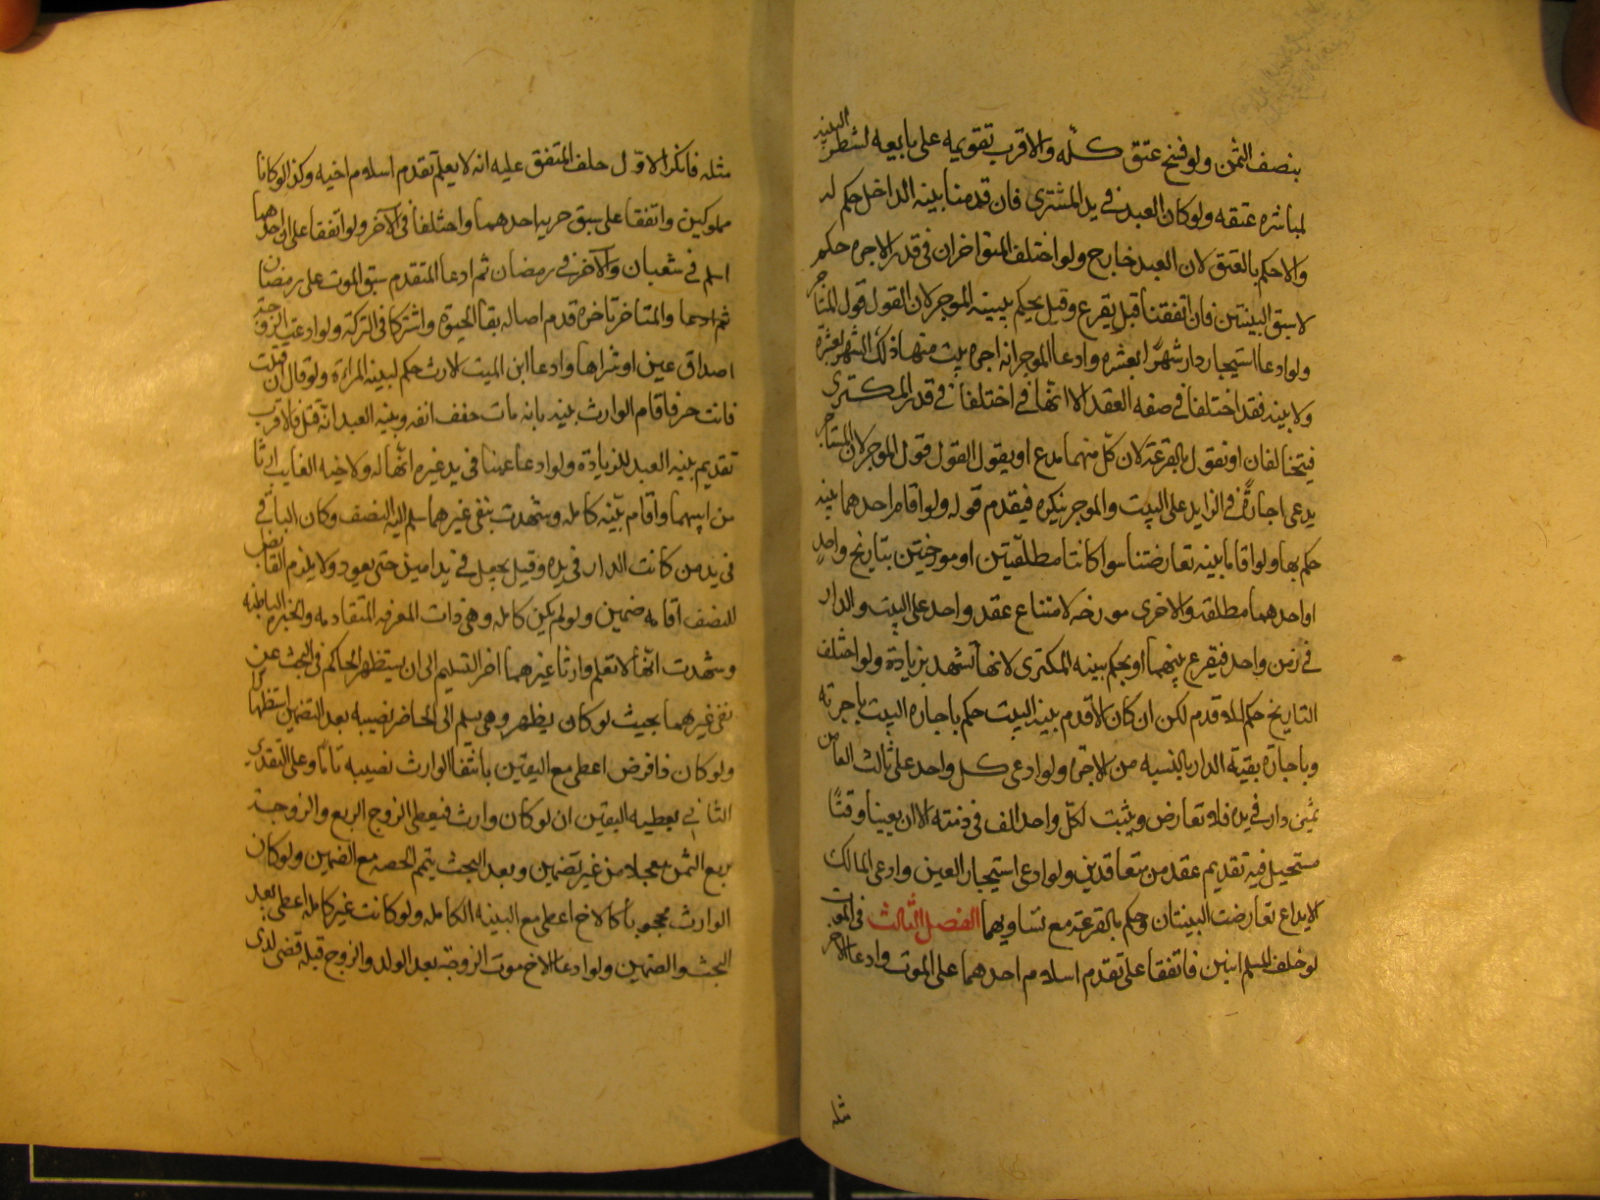 بنصف الثمن ولو فسخ عتق كله والاقرب تقويمه على بايعه لشهادة البينة
لمباشره عتقه ولو كان العبد في يد المشترى فان قدمنا بينه الداخل حكم له
والا حكم بالعتق لان العبد خارج ولو اختلف المتواجران في قدر الاجره حكم
لاسبق البينتين فان اتفقتا قيل يقرع وقيل يحكم ببينه الموجر لان القول قول المستاجر
ولو ادعا استيجار دار شهرا بعشره وادعا الموجر انه اجره بيت منها ذلك الشهر بعشره
ولا بينه فقد اختلفا في صفه العقد الا انهما في اختلفا في قدر المكترى
فيتحالفان او نقول بالقرعة لان كل منهما مدع او يقول القول قول الموجر لان المستاجر
يدعى اجارة في الزايد على البيت والموجر ينكره فيقدم قوله ولو اقام احدهما بينه
حكم بها ولو اقاما بينه تعارضتا سوا كانتا مطلقتين او مورختين بتاريخ واحد
او احدهما مطلقه والاخرى مورخه لامتناع عقد واحد على البيت والدار
في زمن واحد فيقرع بينهما او يحكم ببينه المكترى لانها تشهد بزيادة ولو اختلف
التاريخ حكم للاقدم لكن ان كان الاقدم بينه البيت حكم باجاره البيت باجرته
وباجارة بقية الدار بالنسبه من الاجره ولو ادعى كل واحد على ثالث الفا من
ثمن دار في يده فلا تعارض ويثبت لكل واحد الف في ذمته الا ان يعينا وقتا
مستحيل فيه تقديم عقد من متعاقدين ولو ادعى استيجار العين وادعى المالك
الايداع تعارضت البينتان وحكم بالقرعة مع تساويهما الفصل الثالث في الموت
لو خلف المسلم ابنين فاتفقا على تقدم اسلام احدهما على الموت وادعا الاخر
مثله
مثله فانكر الاول حلف المتفق عليه انه لا يعلم تقدم اسلام اخيه وكذا لو كانا
مملوكين واتفقا على سبق حريه احدهما واختلفا في الاخر ولو اتفقا على ان احدهما
اسلم في شعبان والاخر في رمضان ثم ادعا المتقدم سبق الموت على رمضان
والمتاخر تاخره قدم اصاله بقا الحيوة واشتركا في التركة ولو ادعت الزوجة
اصداق عين او شراها وادعا ابن الميت الارث حكم لبينه المراة ولو قال ان قتلت
فانت حر فاقام الوارث بينه بانه مات حتف انفه وبينه العبد انه قتل فالاقرب
تقديم بينه العبد للزيادة ولو ادعا عينا في يد غيره انها له ولاخيه الغايب ارثا
من ابيهما واقام بينه كامله وشهدت بنفى غيرهما سلم اليه النصف وكان الباقي
في يد من كانت الدار في يده وقيل يجعل في يد امين حتى يعود ولا يلزم القابض
للنصف اقامه ضمين ولو لم يكن كامله وهي ذات المعرفه المتقادمه والخبره الباطنه
وشهدت انها لا تعلم وارثا غيرهما اخر التسليم الى ان يستظهر الحاكم في البحث عن
نفى غيرهما بحيث لو كان يظهر وهى يسلم الى الحاضر نصيبه بعد التضمين استظهارا
ولو كان ذا فرض اعطى مع اليقين بانتفا الوارث نصيبه تاما وعلى التقدير
الثانى يعطيه اليقين ان لو كان وارث فيعطى الزوج الربع والزوجة
ربع الثمن معجلا من غير تضمين وبعد البحث يتم الحصه مع الضمين ولو كان
الوارث محجوبا كالاخ اعطى مع البينه الكامله ولو كانت غير كامله اعطى بعد
البحث والضمين ولو ادعا الاخ موت الزوجة بعد الولد والزوج قبله قضى لذى